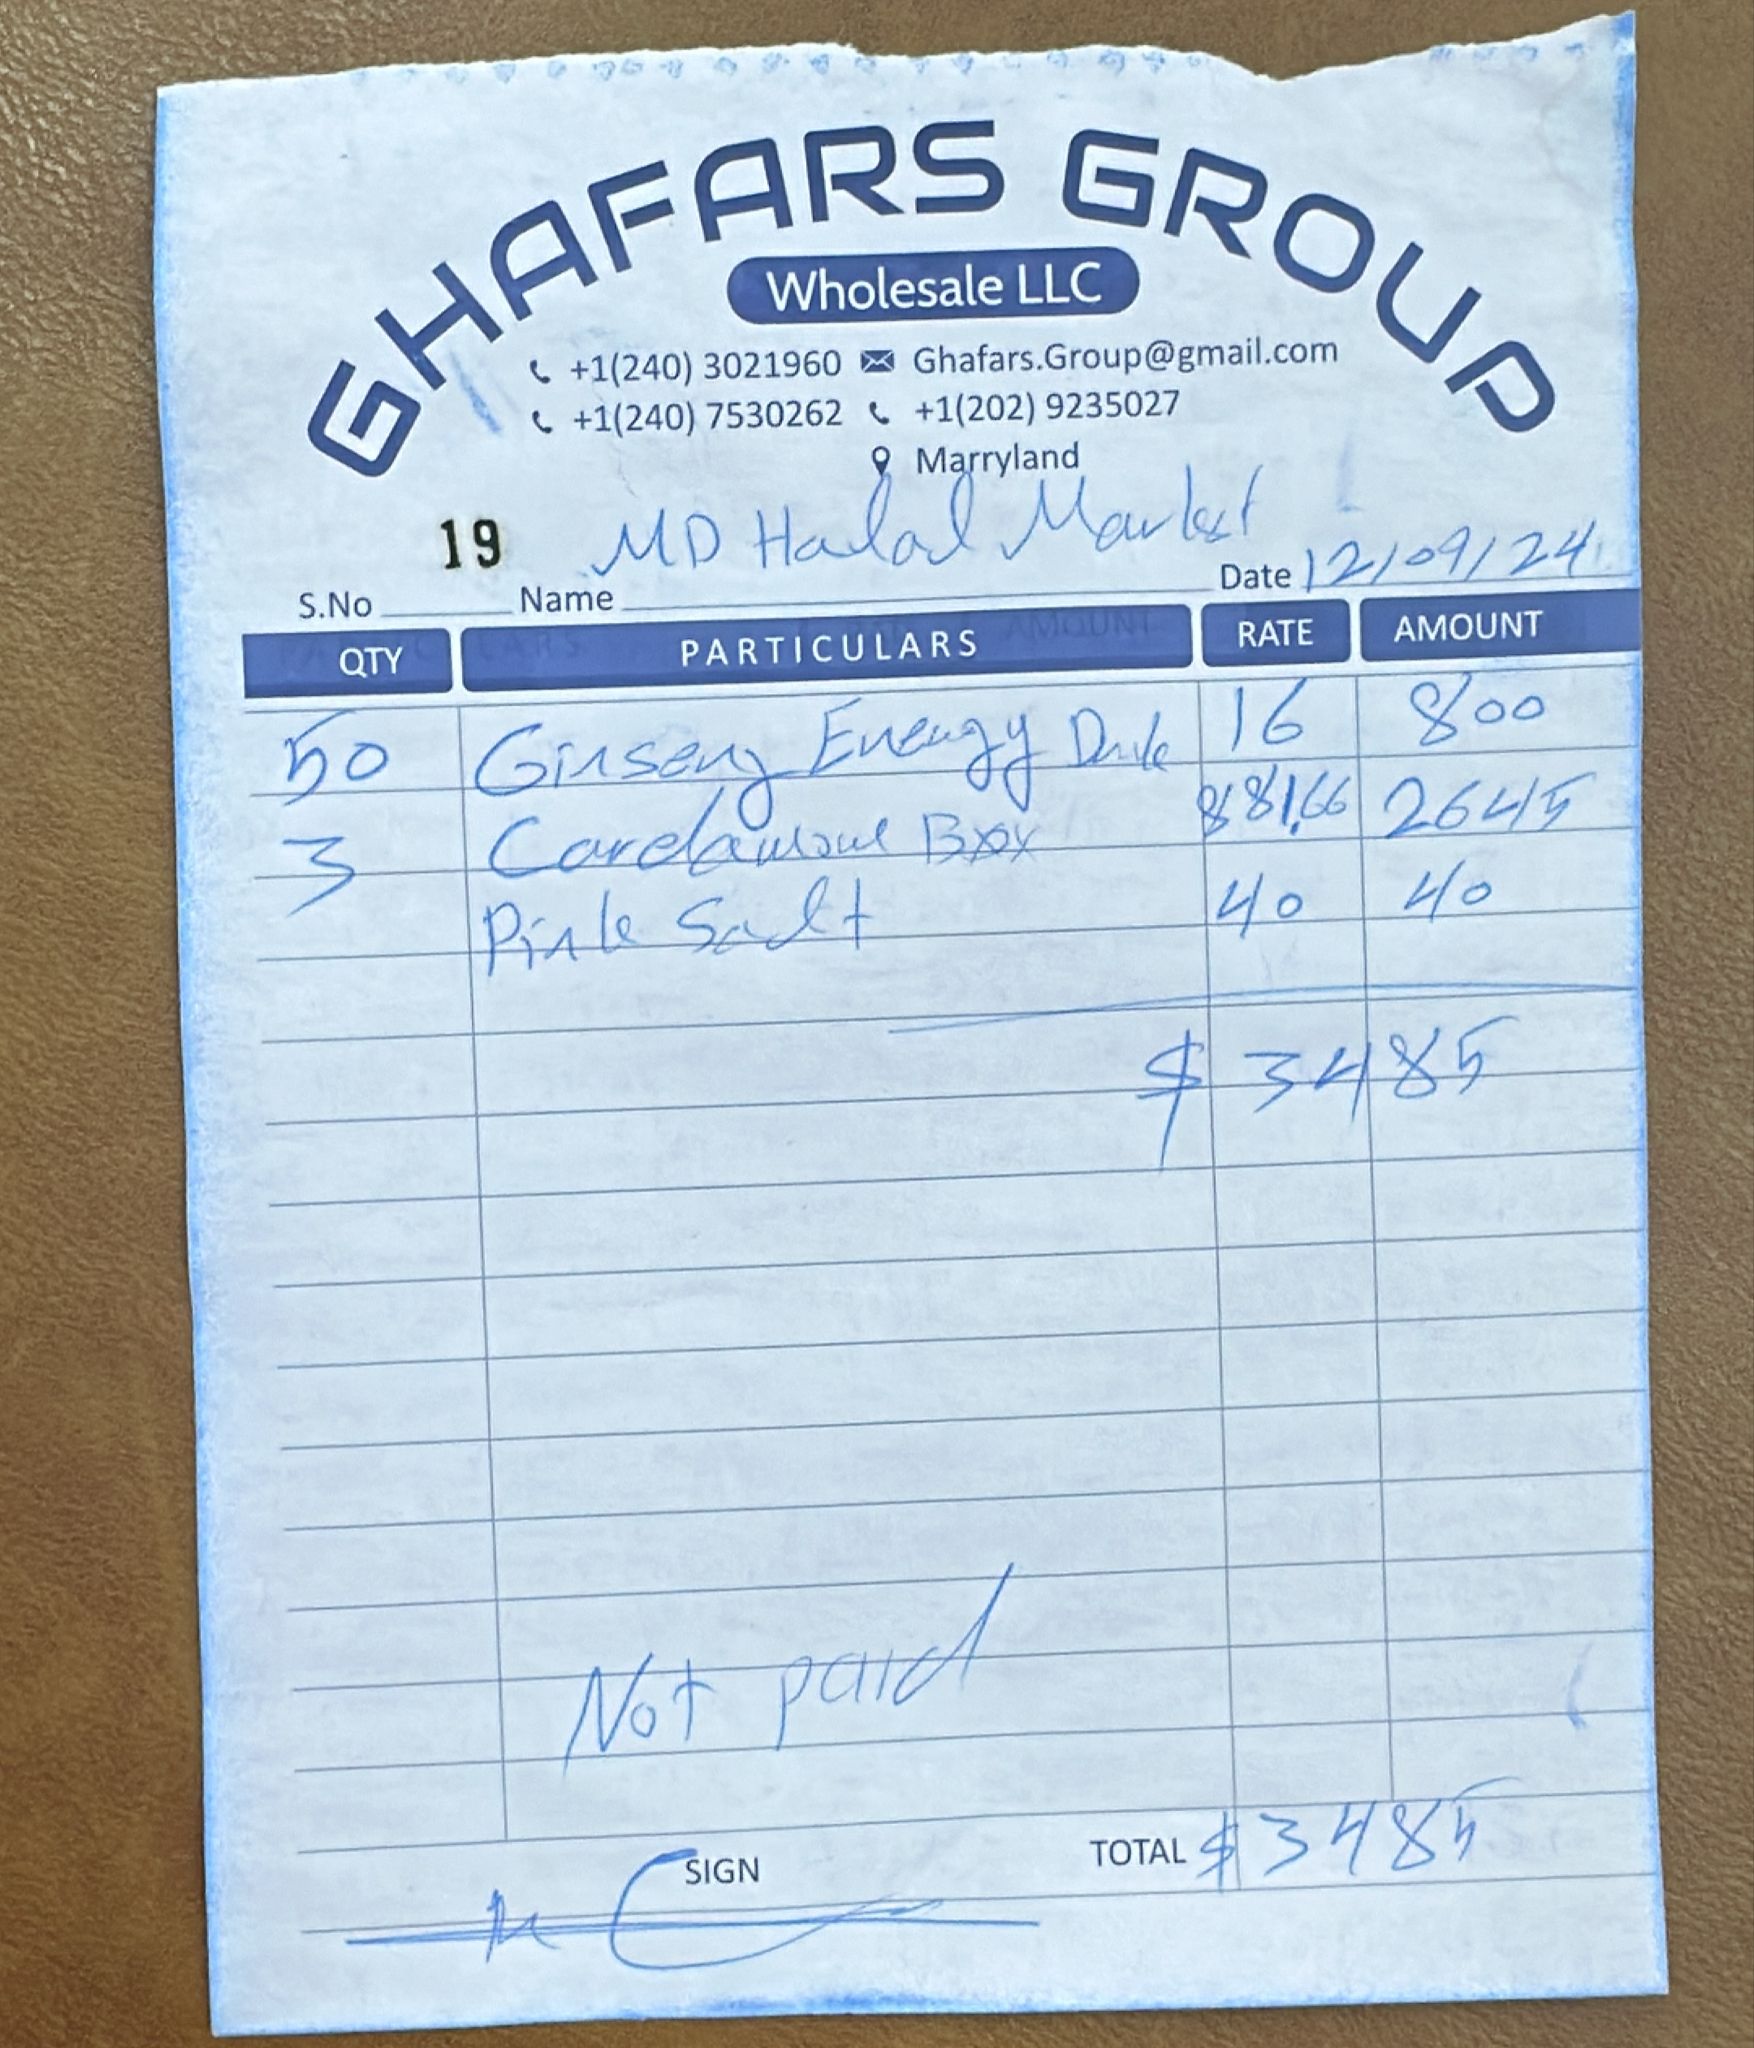 GHAFARS GROUP
Wholesale LLC
+1(240) 3021960 Ghafars.Group@gmail.com
+1(240) 7530262 +1(202) 9235027
Marryland
S.No 19 Name MD Halal Market Date 12/09/24
QTY PARTICULARS RATE AMOUNT
50 Ginseng Energy Drink 16 800
3 Cardamom Box 881.66 2645
Pink Salt 40 40
$ 3485
Not paid
SIGN TOTAL $3485